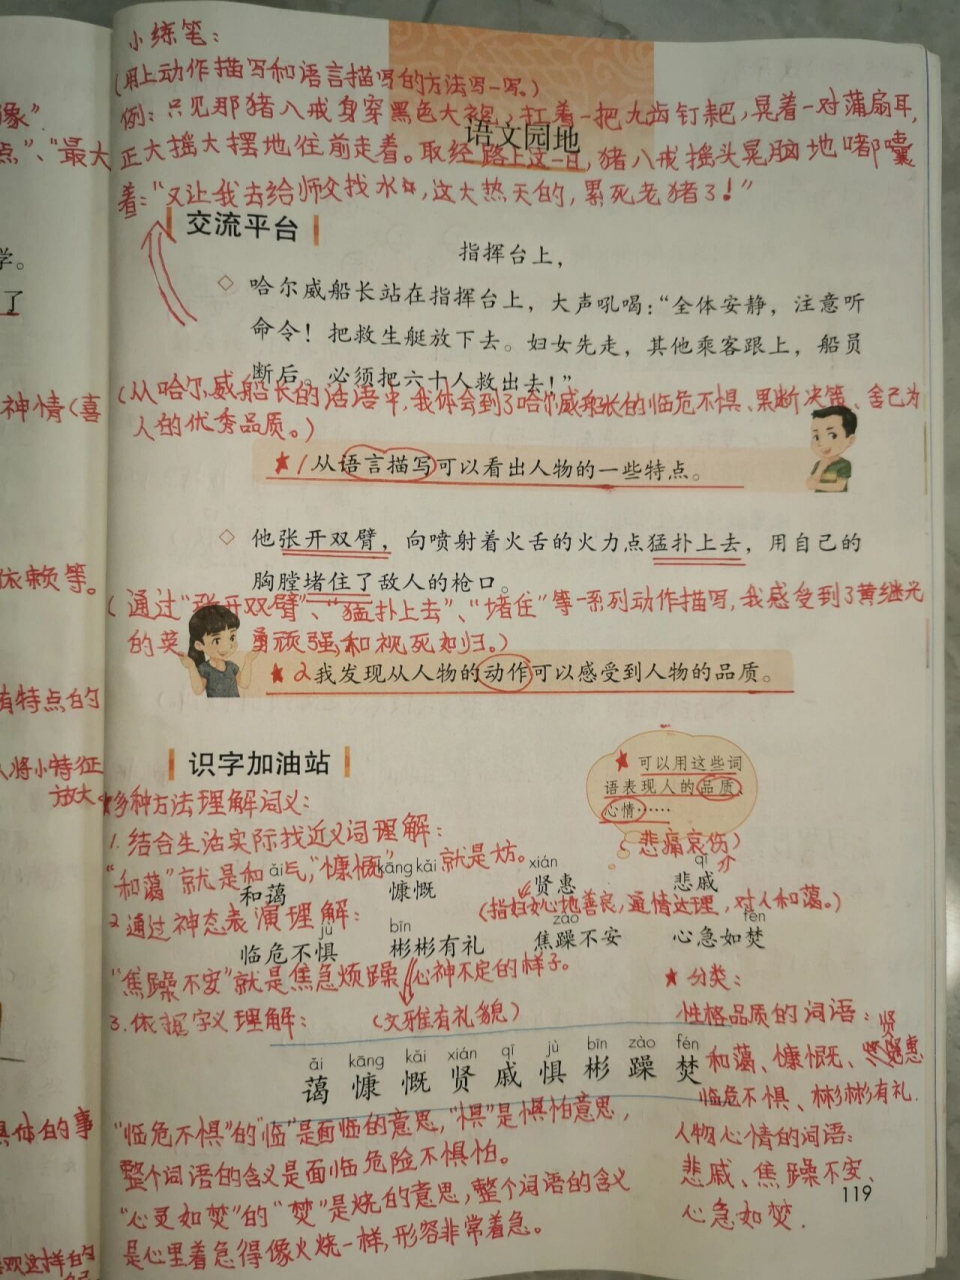 小练笔：
（用上动作描写和语言描写的方法写一写。）
例：只见那猪八戒身穿黑色大袍，扛着一把九齿钉耙，晃着一对蒲扇耳，
正大摇大摆地住前走着。取经路上这一日，猪八戒摇头晃脑地嘟囔
着：“又让我去给师父找水，这大热天的，累死老猪了！”
语文园地
交流平台
指挥台上，
哈尔威船长站在指挥台上，大声吼喝：“全体安静，注意听
命令！把救生艇放下去。妇女先走，其他乘客跟上，船员
断后。必须把六十人救出去！”
（从哈尔威船长的话语中，我体会到了哈尔威船长的临危不惧、果断决策、舍己为
人的优秀品质。）
★1从语言描写可以看出人物的一些特点。
他张开双臂，向喷射着火舌的火力点猛扑上去，用自己的
胸膛堵住了敌人的枪口。
（通过“张开双臂”、“猛扑上去”、“堵住”等一系列动作描写，我感受到了黄继光
的英勇顽强和视死如归。）
★2我发现从人物的动作可以感受到人物的品质。
识字加油站
★可以用这些词
语表现人的品质、
心情……
★多种方法理解词义：
1.结合生活实际找近义词理解：
（悲痛哀伤）
“和蔼”就是和气，“慷慨”就是大方。
ǎi kāng kǎi xián qī
和蔼 慷慨 贤惠 悲戚
（指妇女心地善良，通情达理，对人和蔼。）
2.通过神态表演理解：
jù bīn zào fén
临危不惧 彬彬有礼 焦躁不安 心急如焚
“焦躁不安”就是焦急烦躁，心神不定的样子。
3.依据字义理解：
（文雅有礼貌）
ǎi kāng kǎi xián qī jù bīn zào fén
蔼 慷 慨 贤 戚 惧 彬 躁 焚
“临危不惧”的“临”是面临的意思，“惧”是惧怕意思，
整个词语的含义是面临危险不惧怕。
“心灵如焚”的“焚”是烧的意思，整个词语的含义
是心里着急得像火烧一样，形容非常着急。
★分类：
性格品质的词语：
和蔼、慷慨、贤惠
临危不惧、彬彬有礼.
人物心情的词语：
悲戚、焦躁不安、
心急如焚.
119
像”.
点”、“最大
学。
了
神情（喜
依赖等。
有特点的
人将小特征
放大。
具体的事
喜欢这样的